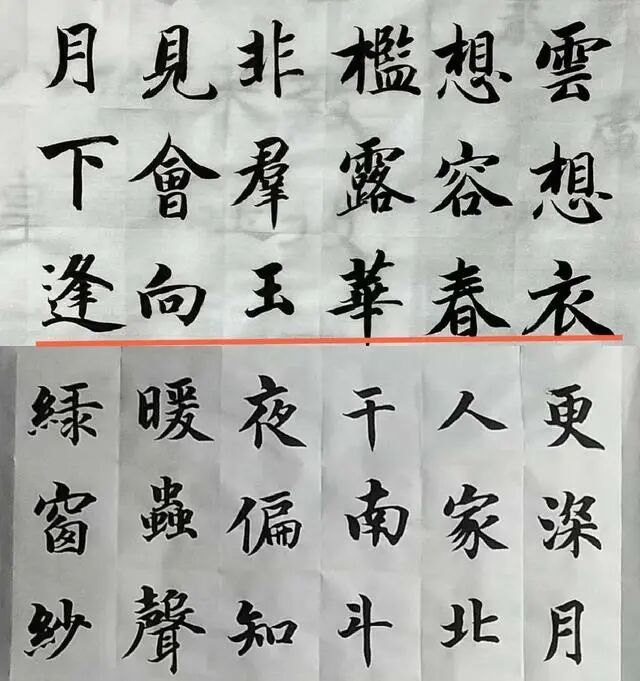 雲想衣
想容春
檻露華
非羣玉
見會向
月下逢
更深月
人家北
干南斗
夜偏知
暖蟲聲
緑窗紗